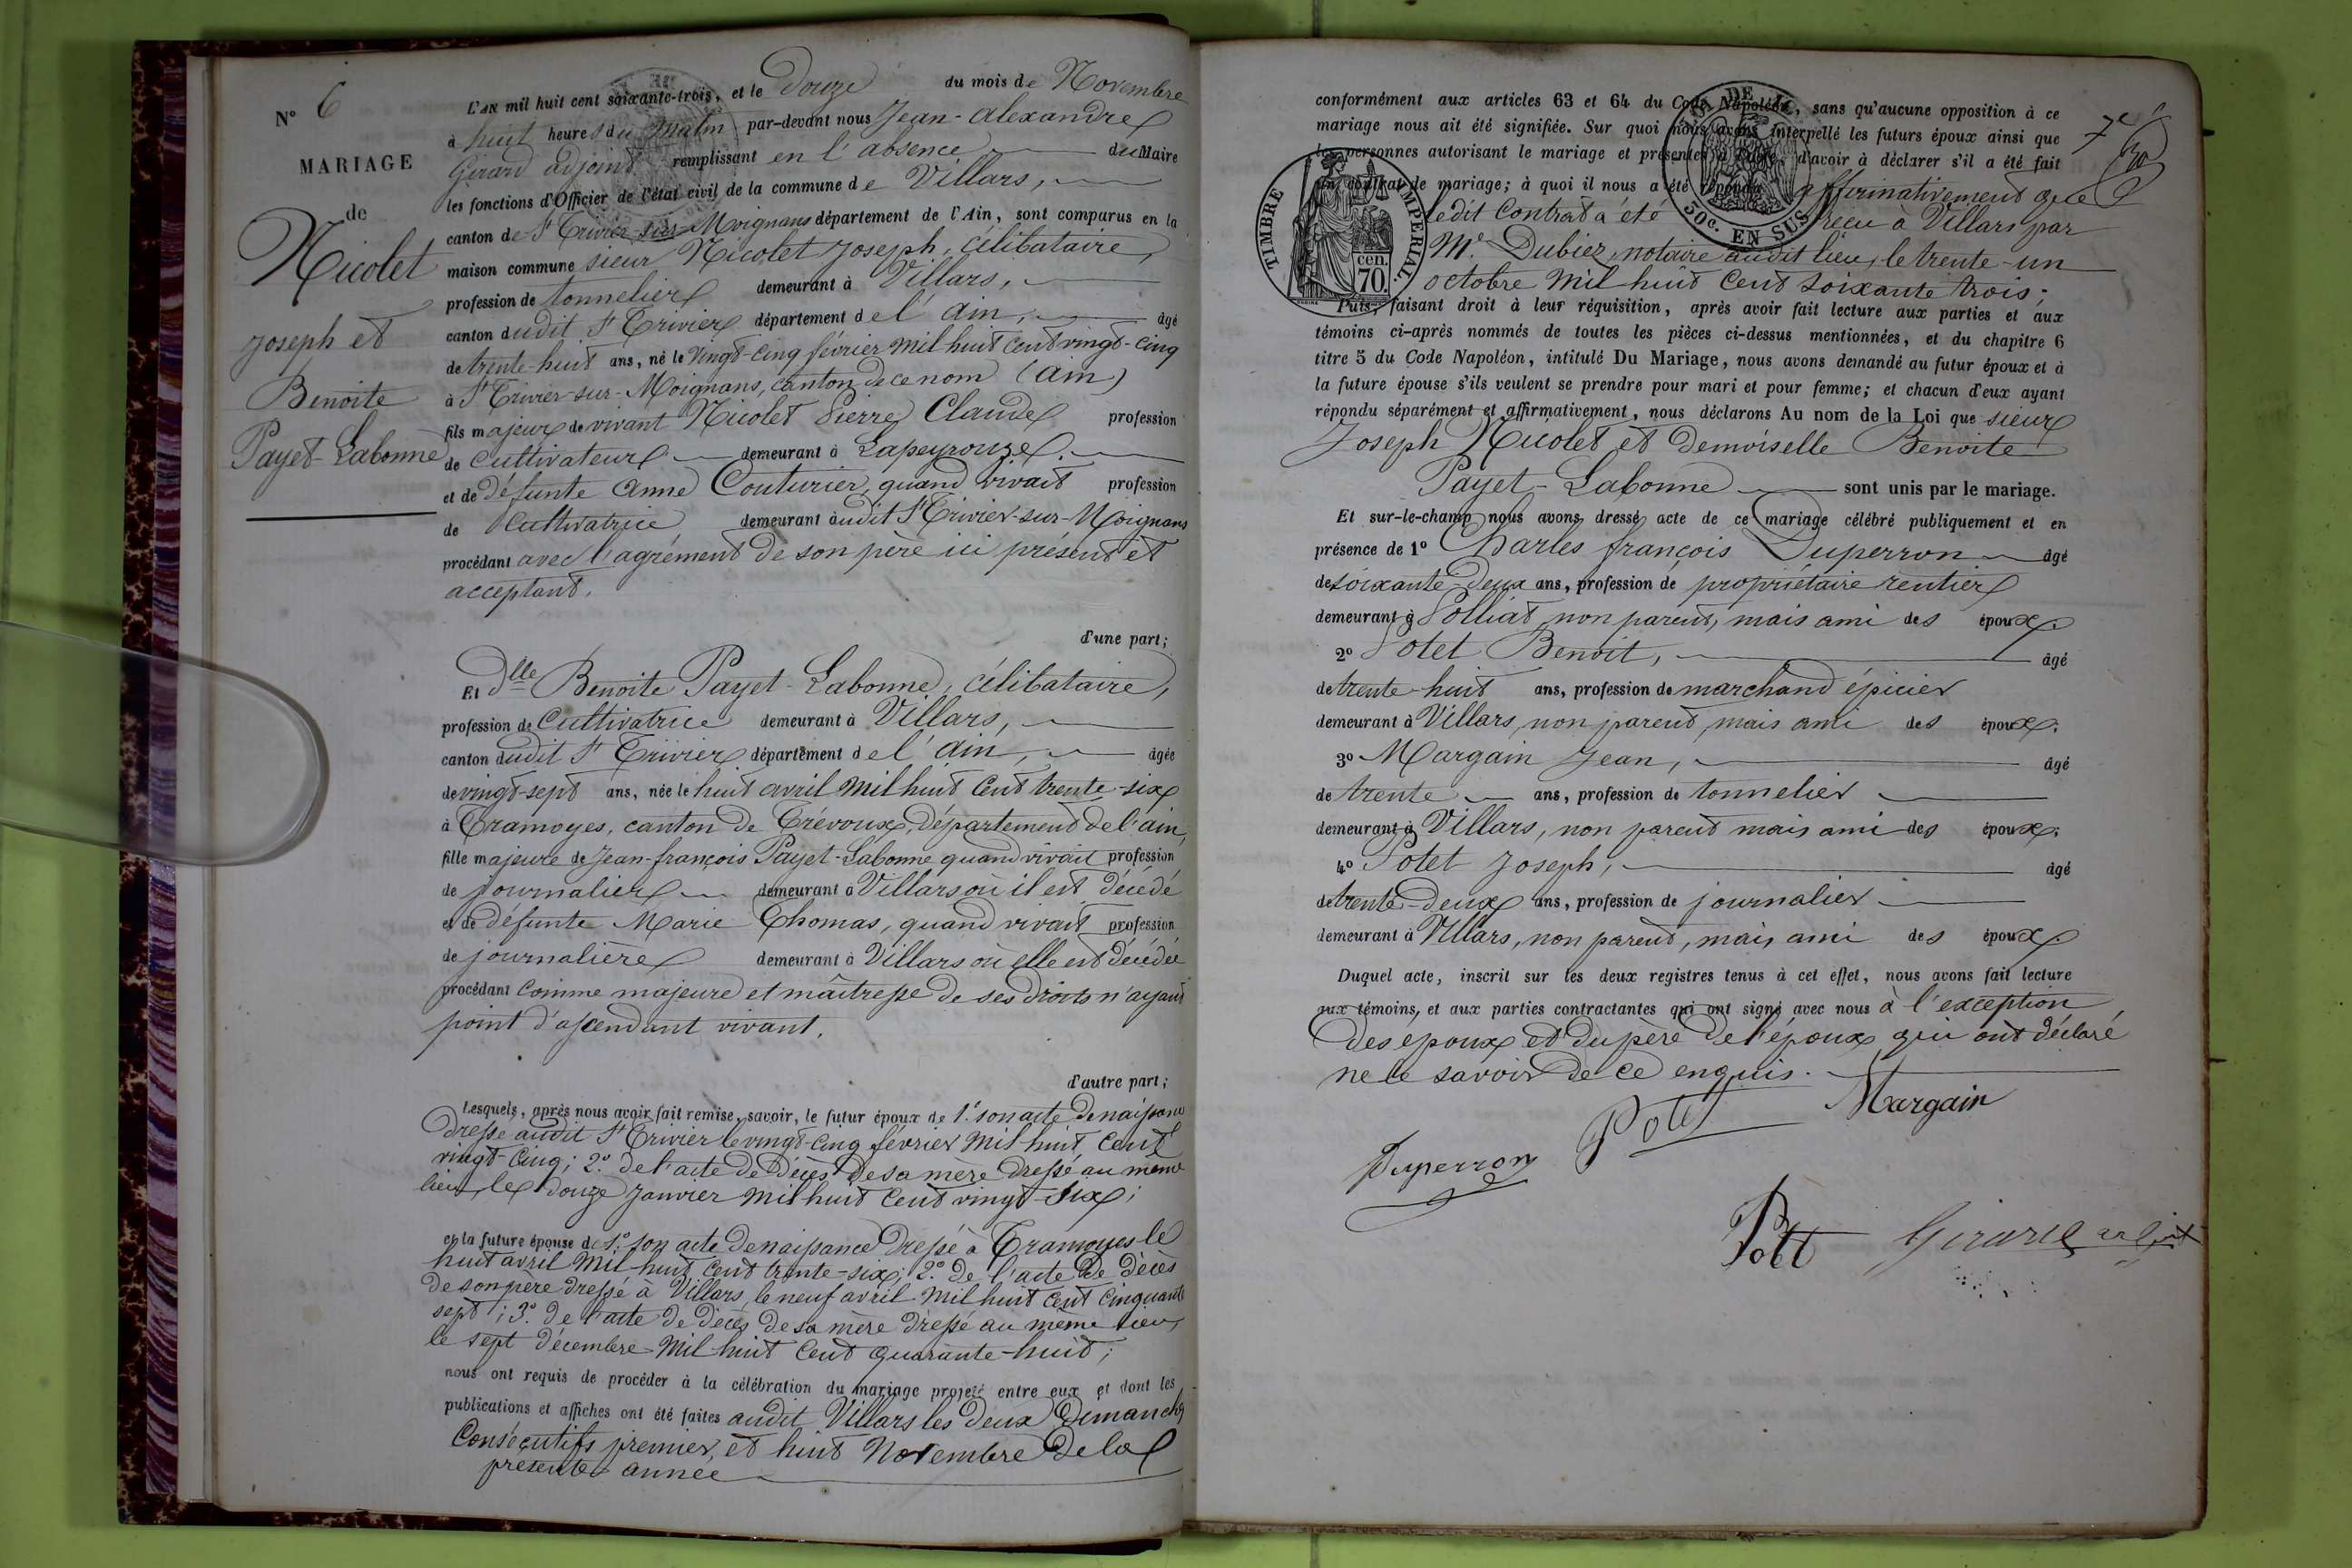 N° 6
MARIAGE
de
Nicolet
Joseph et
Benoite
Payet-Labonne
L'AN mil huit cent soixante-trois, et le Douze du mois de Novembre
à huit heures du matin par-devant nous Jean-Alexandre
Girard adjoint remplissant en l'absence du Maire
les fonctions d'Officier de l'état civil de la commune de Villars,
canton de St Trivier sur Moignans département de l'Ain, sont comparus en la
maison commune sieur Nicolet Joseph, célibataire,
profession de tonnelier demeurant à Villars,
canton dudit St Trivier département de l'Ain, âgé
de trente-huit ans, né le vingt-cinq février mil huit cent vingt-cinq
à St Trivier-sur-Moignans, canton de ce nom (Ain)
fils majeur de vivant Nicolet Pierre Claude profession
de cultivateur demeurant à Lapeyrouze.
et de défunte Anne Couturier, quand vivait profession
de cultivatrice demeurant audit St Trivier-sur-Moignans
procédant avec l'agrément de son père ici présent et
acceptant.
d'une part;
Et Dlle Benoite Payet-Labonne, célibataire,
profession de cultivatrice demeurant à Villars,
canton dudit St Trivier département de l'Ain, âgée
de vingt-sept ans, née le huit avril mil huit cent trente-six
à Tramoyes, canton de Trévoux, département de l'ain,
fille majeure de Jean-françois Payet-Labonne quand vivait profession
de journalier demeurant à Villars où il est décédé
et de défunte Marie Thomas, quand vivait profession
de journalière demeurant à Villars où elle est décédée
procédant comme majeure et maîtresse de ses droits n'ayant
point d'ascendant vivant.
d'autre part;
Lesquels, après nous avoir fait remise, savoir, le futur époux de 1.° son acte de naissance
dressé audit St Trivier le vingt-cinq février mil huit cent
vingt-cinq; 2.° de l'acte de décès de sa mère dressé au même
lieu, le douze Janvier mil huit cent vingt-six;
et la future épouse de 1.° son acte de naissance dressé à Tramoyes le
huit avril mil huit cent trente-six; 2.° de l'acte de décès
de son père dressé à Villars, le neuf avril mil huit cent cinquante
sept; 3.° de l'acte de décès de sa mère dressé au même lieu,
le sept décembre mil huit cent quarante-huit;
nous ont requis de procéder à la célébration du mariage projeté entre eux et dont les
publications et affiches ont été faites audit Villars les deux dimanches
consécutifs premier et huit Novembre de la
présente année
conformément aux articles 63 et 64 du Code Napoléon, sans qu'aucune opposition à ce
mariage nous ait été signifiée. Sur quoi nous avons interpellé les futurs époux ainsi que
les personnes autorisant le mariage et présentes à l'acte, d'avoir à déclarer s'il a été fait
un contrat de mariage; à quoi il nous a été répondu affirmativement que
ledit contrat a été reçu à Villars par
Me Dubiez, notaire audit lieu, le trente-un
octobre mil huit cent soixante trois;
7e
TIMBRE IMPERIAL
70 cen.
50c. EN SUS
Puis, faisant droit à leur réquisition, après avoir fait lecture aux parties et aux
témoins ci-après nommés de toutes les pièces ci-dessus mentionnées, et du chapitre 6
titre 5 du Code Napoléon, intitulé Du Mariage, nous avons demandé au futur époux et à
la future épouse s'ils veulent se prendre pour mari et pour femme; et chacun d'eux ayant
répondu séparément et affirmativement, nous déclarons Au nom de la Loi que sieur
Joseph Nicolet et Demoiselle Benoite
Payet-Labonne sont unis par le mariage.
Et sur-le-champ nous avons dressé acte de ce mariage célébré publiquement et en
présence de 1° Charles françois Duperron âgé
de soixante-deux ans, profession de propriétaire rentier
demeurant à Polliat, non parent, mais ami des époux.
2° Potet Benoit, âgé
de trente-huit ans, profession de marchand épicier
demeurant à Villars, non parent, mais ami des époux.
3° Margain Jean, âgé
de trente ans, profession de tonnelier
demeurant à Villars, non parent mais ami des époux.
4° Potet Joseph, âgé
de trente-deux ans, profession de journalier
demeurant à Villars, non parent, mais ami des époux.
Duquel acte, inscrit sur les deux registres tenus à cet effet, nous avons fait lecture
aux témoins, et aux parties contractantes qui ont signé avec nous à l'exception
des époux et du père de l'époux qui ont déclaré
ne le savoir de ce enquis.
Margain
Potet
Duperron
Potet
Girard adjoint